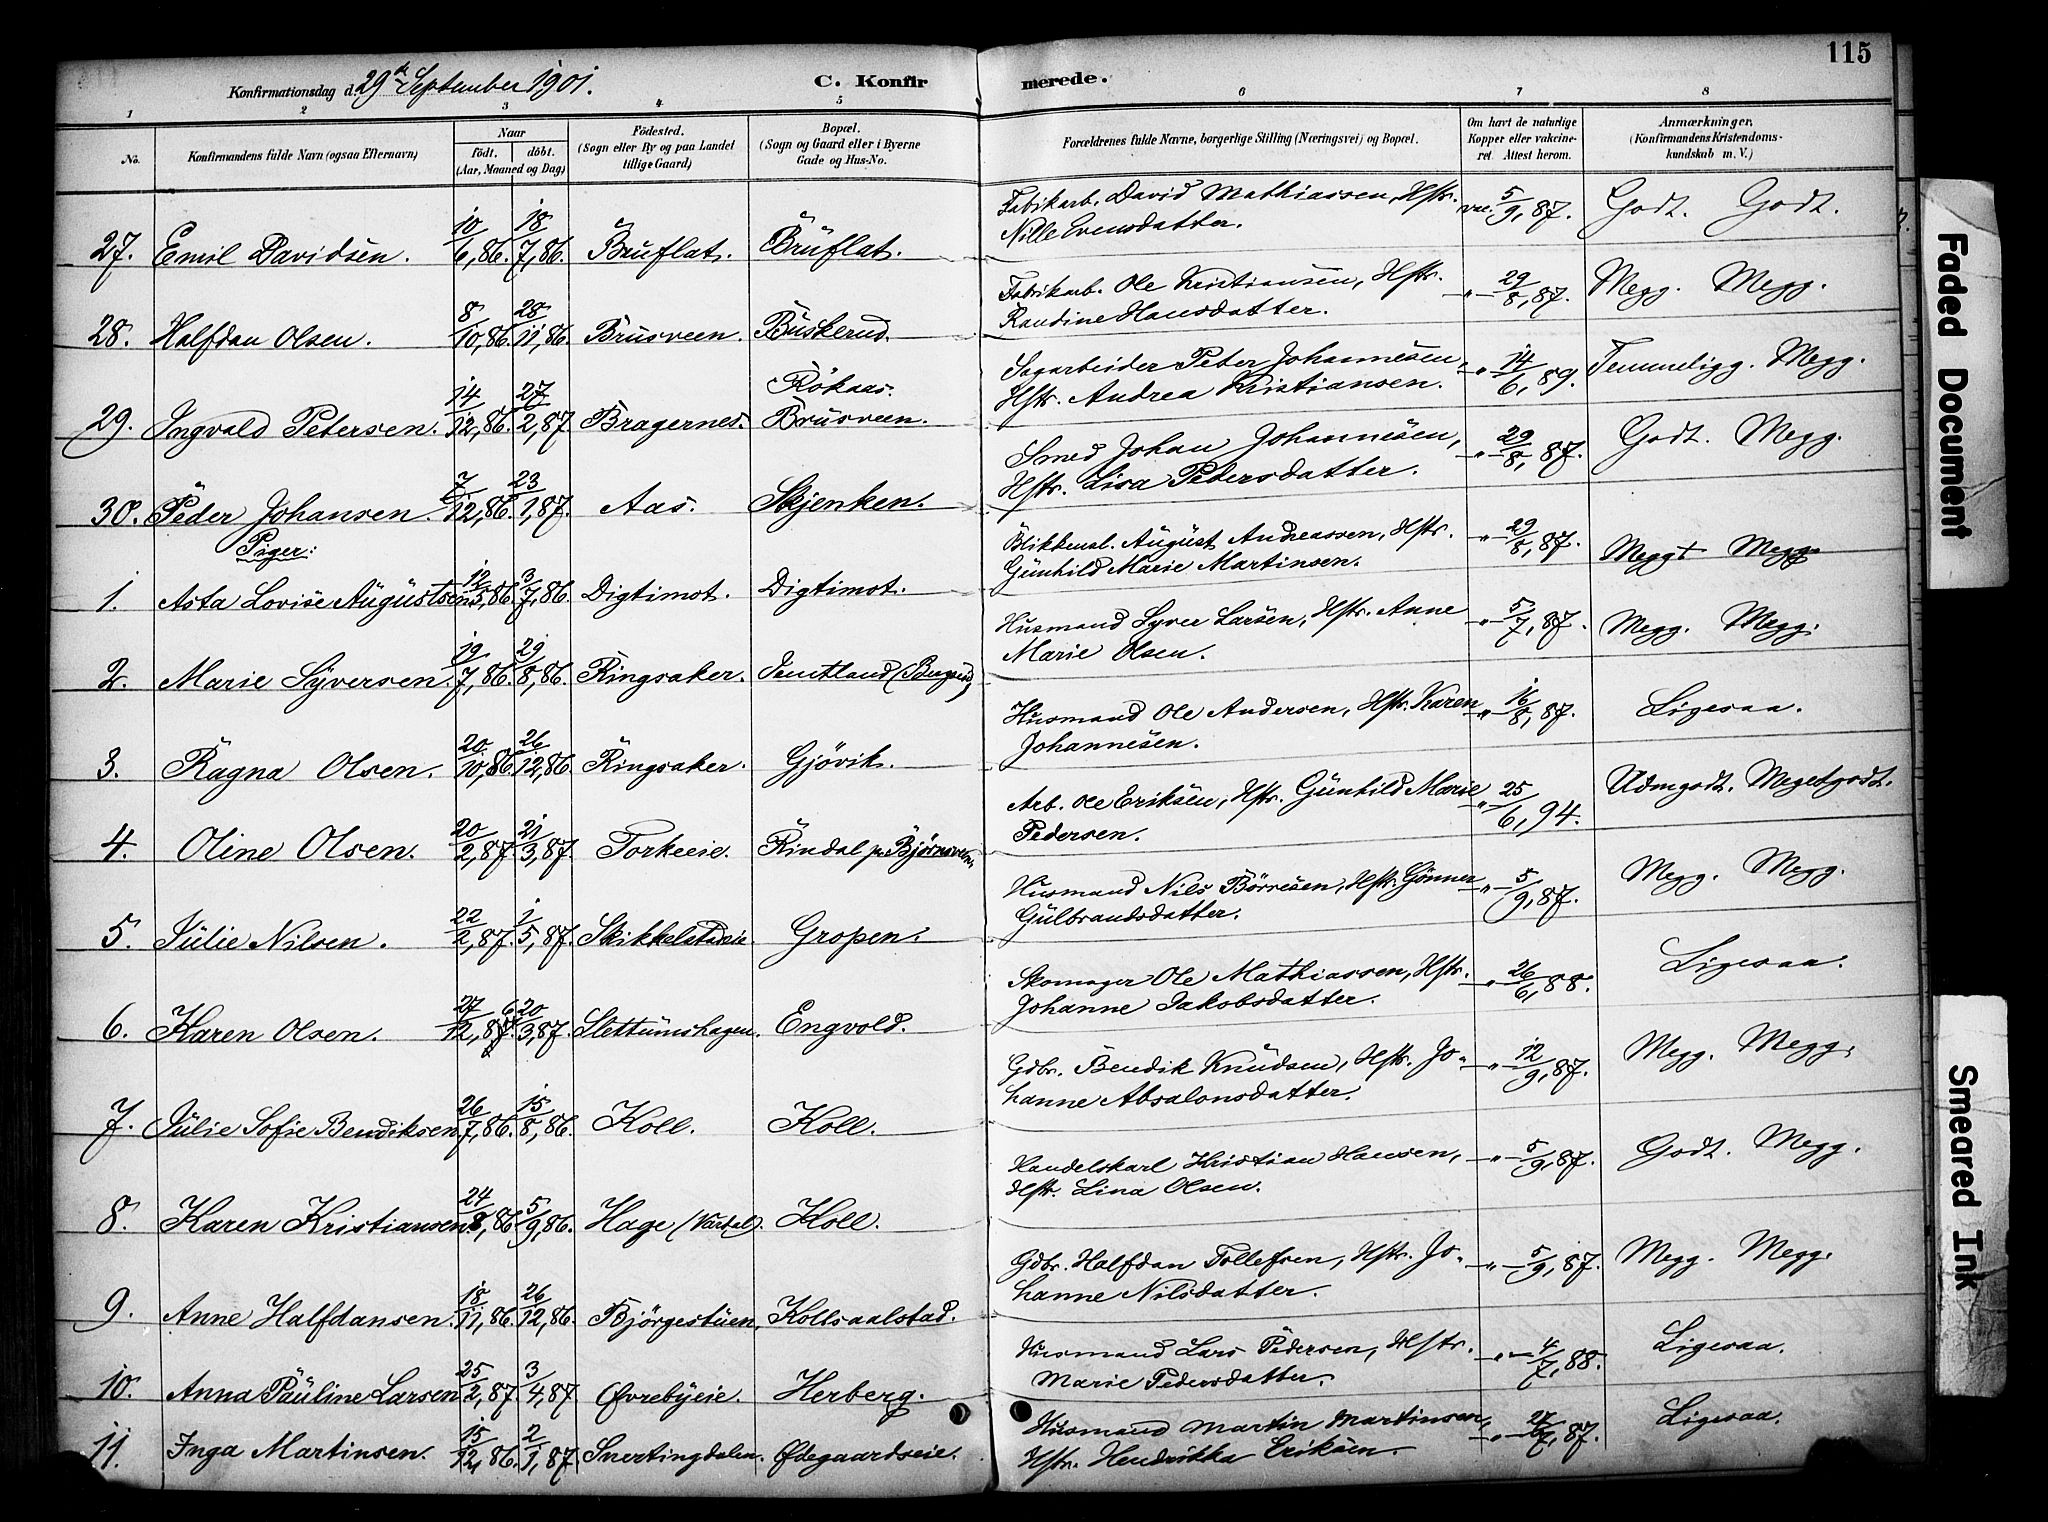 115
Konfirmationsdag d. 29de September 1901.
C. Konfirmerede.
1 2 3 4 5 6 7 8
No.
Konfirmandens fulde Navn (ogsaa Efternavn)
Naar
födt, döbt.
(Aar, Maaned og Dag)
Födested.
(Sogn eller By og paa Landet
tillige Gaard)
Bopæl.
(Sogn og Gaard eller i Byerne
Gade og Hus-No.
Forældrenes fulde Navne, borgerlige Stilling (Næringsvei) og Bopæl.
Om havt de naturlige
Kopper eller vakcine-
ret. Attest herom.
Anmærkninger.
(Konfirmandens Kristendoms-
kundskab m. V.)
Fabrikarb. David Mathiassen, Hstr. vac. 5/9, 87. Godt. Godt.
Nille Evensdatter.
27. Emil Davidsen. 10/6, 86. 18/7, 86. Bruflat. Bruflat.
Fabrikarb. Ole Kristiansen, Hstr. -"- 29/8, 87. Megg. Megg.
Randine Hansdatter.
28. Halfdan Olsen. 8/10, 86. 28/11, 86. Brusveen. Buskerud.
Sagarbeider Peter Johannesen, -"- 14/6, 89. Temmeligg. Megg.
Hstr. Andrea Kristiansen.
Rökaas.
29. Ingvald Petersen. 14/12, 86. 27/2, 87. Bragernes. Brusveen.
Smed Johan Johannesen, -"- 29/8, 87. Godt. Megg.
Hstr. Lisa Pedersdatter.
30. Peder Johansen. 7/12, 86. 23/1, 87. Aas. Skjenken.
Piger:
Blikkensl. August Andreassen, Hstr. -"- 29/8, 87. Meggt Megg
Gunhild Marie Martinsen.
1. Asta Lovise Augustsen 12/5, 86. 3/7, 86. Digtimot. Digtimot.
Husmand Syver Larsen, Hstr. Anne -"- 5/7, 87. Megg. Megg.
Marie Olsen.
2. Marie Syversen. 19/7, 86. 29/8, 86. Ringsaker.
Husmand Ole Andersen, Hstr. Karen -"- 16/8, 87. Ligesaa.
Johannesen.
3. Ragna Olsen. 20/10, 86. 26/12, 86. Ringsaker. Gjövik.
Arb. Ole Eriksen, Hstr. Gunhild Marie -"- 25/6, 94. Udmgodt. Megetgodt.
Pedersen.
4. Oline Olsen. 20/2, 87. 21/3, 87. Torkeeie. Rindal pr. Björnsveen
Husmand Nils Börresen, Hstr. Gönner -"- 5/9, 87. Megg. Megg.
Gulbrandsdatter.
5. Julie Nilsen. 22/2, 87. 1/5, 87. Skikkelstadeie. Gropen.
Skomager Ole Mathiassen, Hstr. -"- 26/6, 88. Ligesaa.
Johanne Jakobsdatter.
6. Karen Olsen. 27/12, 86. 20/3, 87. Slettumshagen. Engvold.
Gdbr. Bendik Knudsen, Hstr. Jo- -"- 12/9, 87. Megg. Megg.
hanne Absalonsdatter.
7. Julie Sofie Bendiksen 26/7, 86. 15/8, 86. Koll. Koll.
Handelskarl Kristian Hansen, -"- 5/9, 87. Godt. Megg.
Hstr. Lina Olsen.
8. Karen Kristiansen 24/8, 86. 5/9, 86. Hage (Vardal). Koll.
Gdbr. Halfdan Tollefsen, Hstr. Jo- -"- 5/9, 87. Megg. Megg.
hanne Nilsdatter.
9. Anne Halfdansen. 18/11, 86. 26/12, 86. Björgestuen. Kollsaalstad.
Husmand Lars Pedersen, Hstr. -"- 4/7, 88. Ligesaa.
Marie Pedersdatter.
10. Anna Pauline Larsen 25/2, 87. 3/4, 87. Øvrebyeie. Herberg.
Husmand Martin Martinsen, -"- 87. Ligesaa.
Hstr. Hendrikka Eriksen.
11. Inga Martinsen. 15/12, 86. 2/1, 87. Snertingdalen. Ødegaardseie.
Faded Document
Smeared Ink